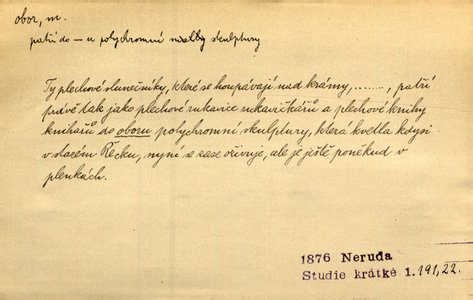 obor, m.
patří do – u polychromní skulptury
Ty plechové slunečníky, které se houpávají nad krámy, ........, patří
právě tak jako plechové rukavice rukavičkářů a plechové knihy
knihařů do oboru polychromní skulptury, která kvetla kdysi
v starém Řecku, nyní se zase oživuje, ale je ještě poněkud v
plenkách.
1876 Neruda
Studie krátké 1. 191, 22.